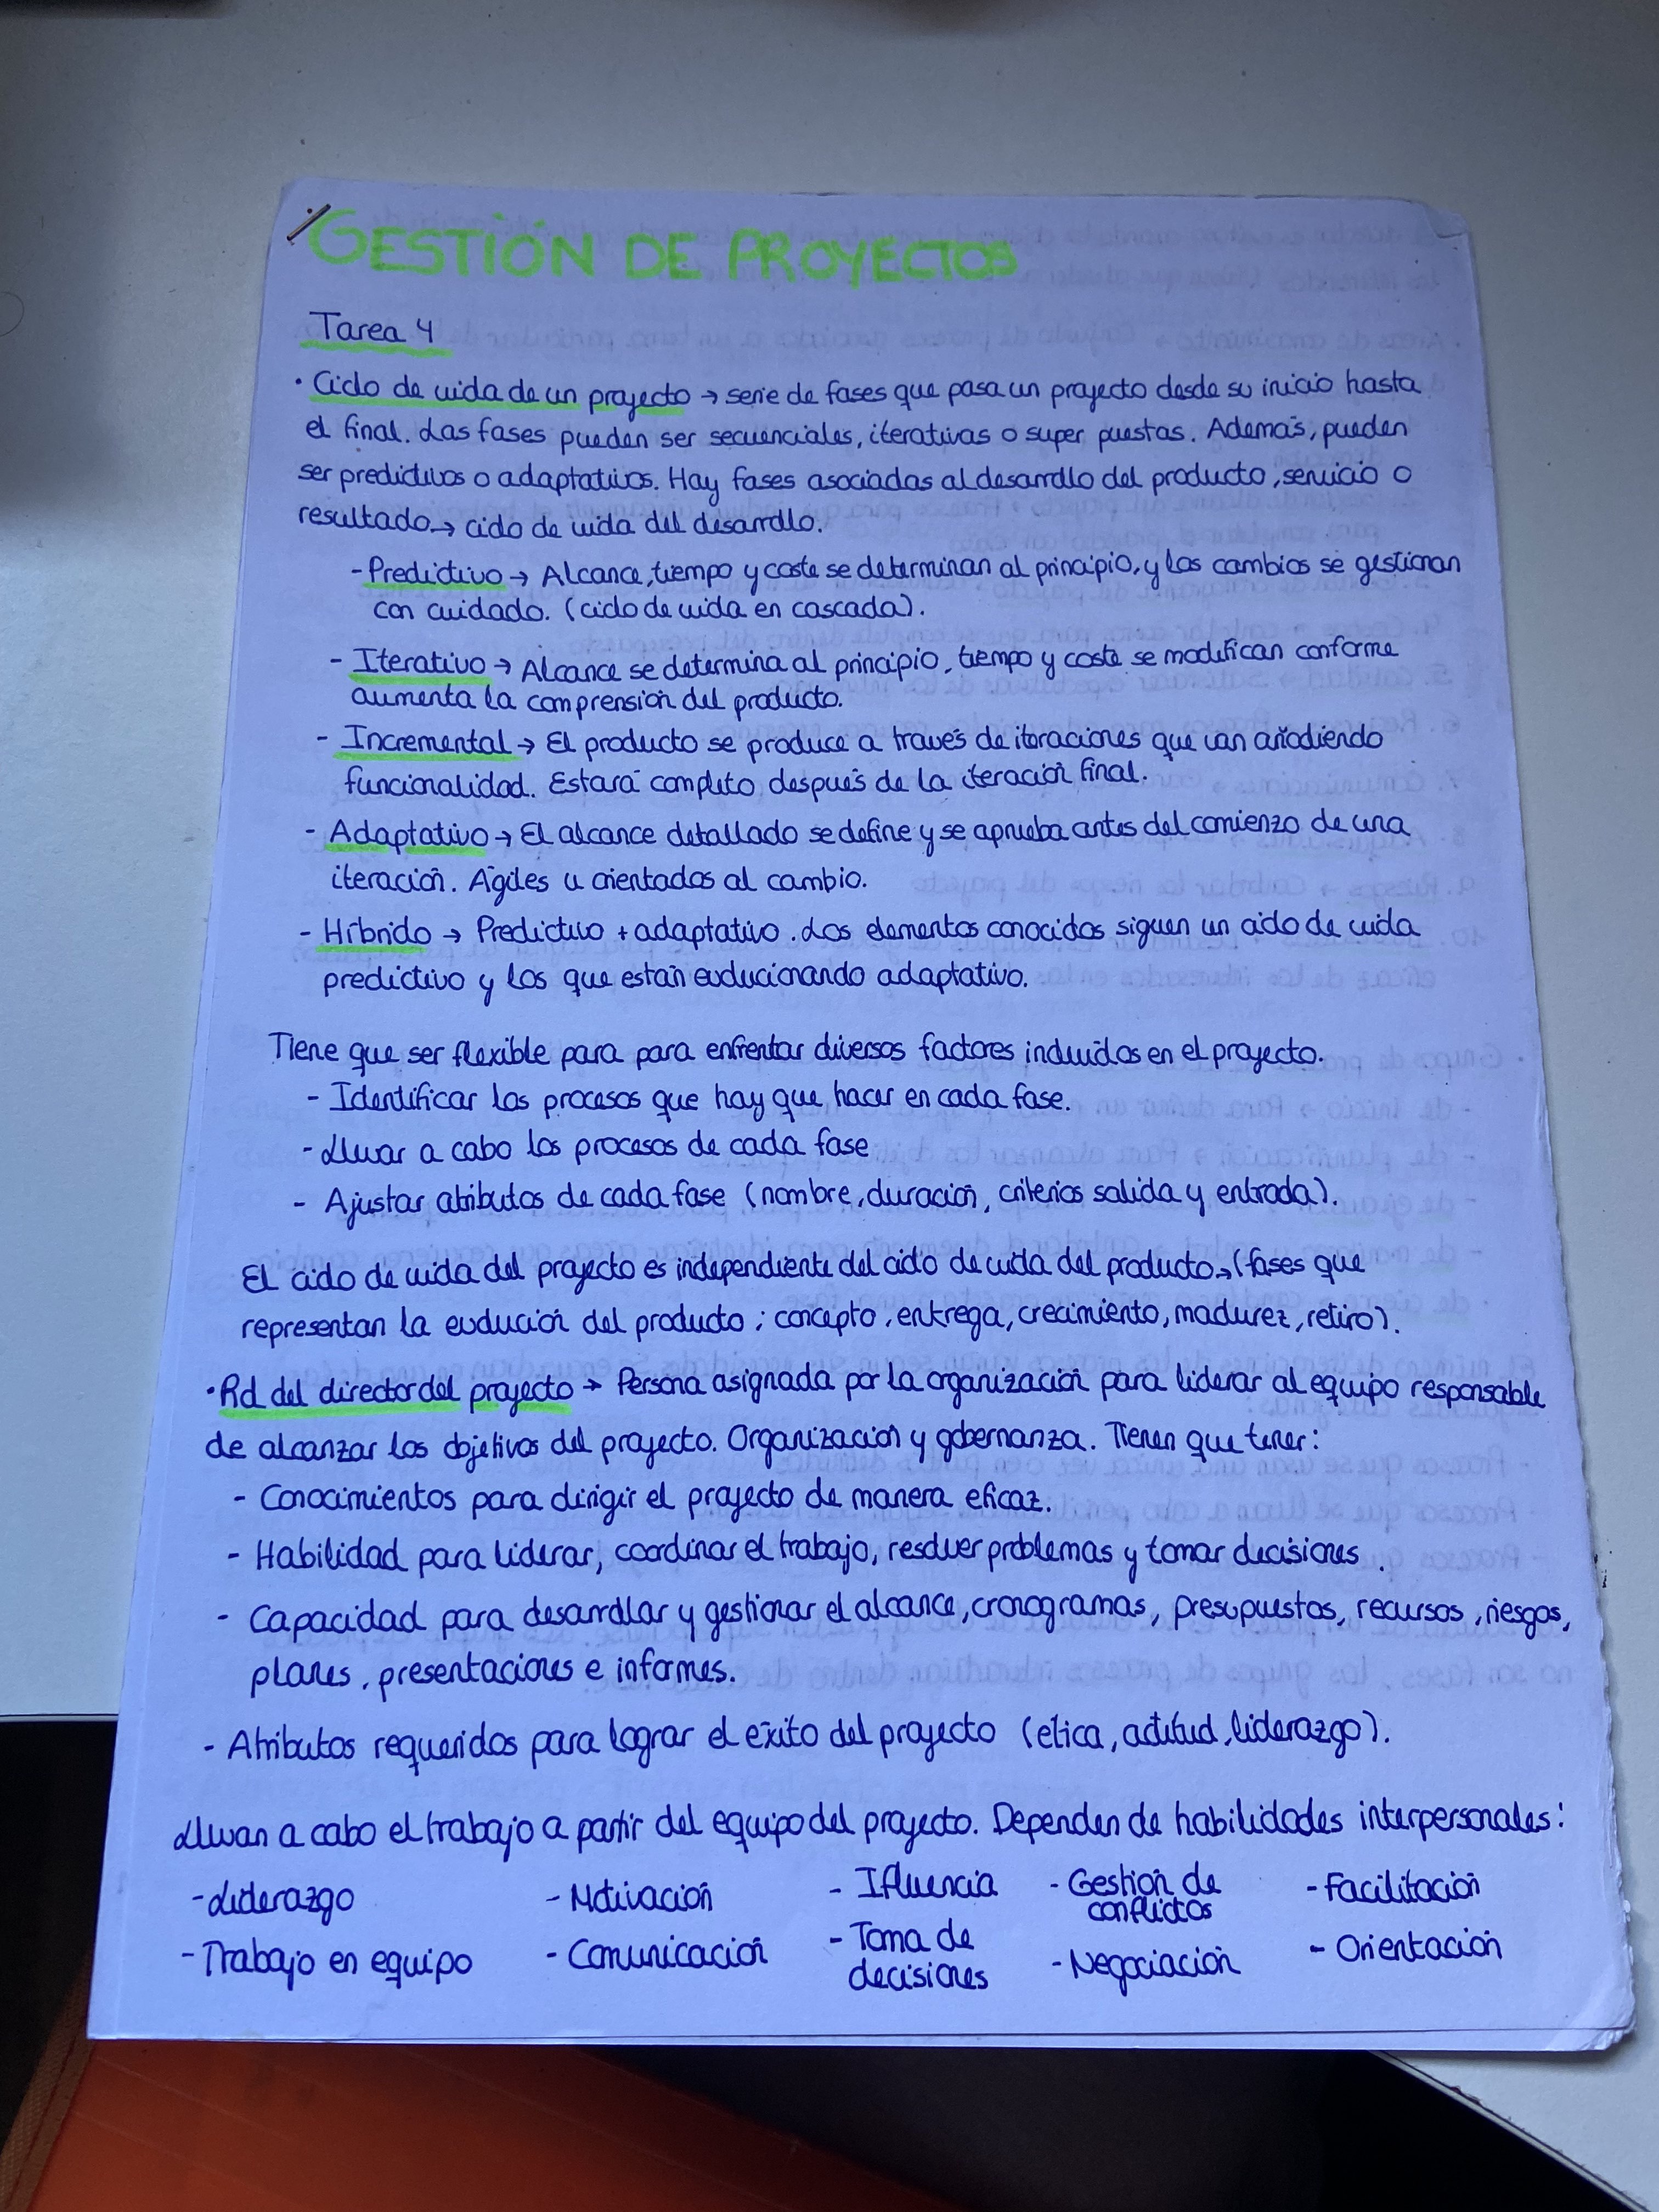 GESTIÓN DE PROYECTOS
Tarea 4
· Ciclo de vida de un proyecto → serie de fases que pasa un proyecto desde su inicio hasta
el final. Las fases pueden ser secuenciales, iterativas o super puestas. Además, pueden
ser predictivos o adaptativos. Hay fases asociadas al desarrollo del producto, servicio o
resultado → ciclo de vida del desarrollo.
- Predictivo → Alcance, tiempo y coste se determinan al principio, y los cambios se gestionan
con cuidado. (ciclo de vida en cascada).
- Iterativo → Alcance se determina al principio, tiempo y coste se modifican conforme
aumenta la comprensión del producto.
- Incremental → El producto se produce a través de iteraciones que van añadiendo
funcionalidad. Estará completo después de la iteración final.
- Adaptativo → El alcance detallado se define y se aprueba antes del comienzo de una
iteración. Ágiles u orientados al cambio.
- Híbrido → Predictivo + adaptativo. Los elementos conocidos siguen un ciclo de vida
predictivo y los que están evolucionando adaptativo.
Tiene que ser flexible para para enfrentar diversos factores incluidos en el proyecto.
- Identificar los procesos que hay que hacer en cada fase.
- Llevar a cabo los procesos de cada fase
- Ajustar atributos de cada fase (nombre, duración, criterios salida y entrada).
El ciclo de vida del proyecto es independiente del ciclo de vida del producto → (fases que
representan la evolución del producto; concepto, entrega, crecimiento, madurez, retiro).
· Rol del director del proyecto → Persona asignada por la organización para liderar al equipo responsable
de alcanzar los objetivos del proyecto. Organización y gobernanza. Tienen que tener:
- Conocimientos para dirigir el proyecto de manera eficaz.
- Habilidad para liderar, coordinar el trabajo, resolver problemas y tomar decisiones.
- Capacidad para desarrollar y gestionar el alcance, cronogramas, presupuestos, recursos, riesgos,
planes, presentaciones e informes.
- Atributos requeridos para lograr el éxito del proyecto (etica, actitud, liderazgo).
Llevan a cabo el trabajo a partir del equipo del proyecto. Dependen de habilidades interpersonales:
- Liderazgo - Motivación - Ifluencia - Gestión de conflictos - Facilitación
- Trabajo en equipo - Comunicación - Toma de decisiones - Negociación - Orientación